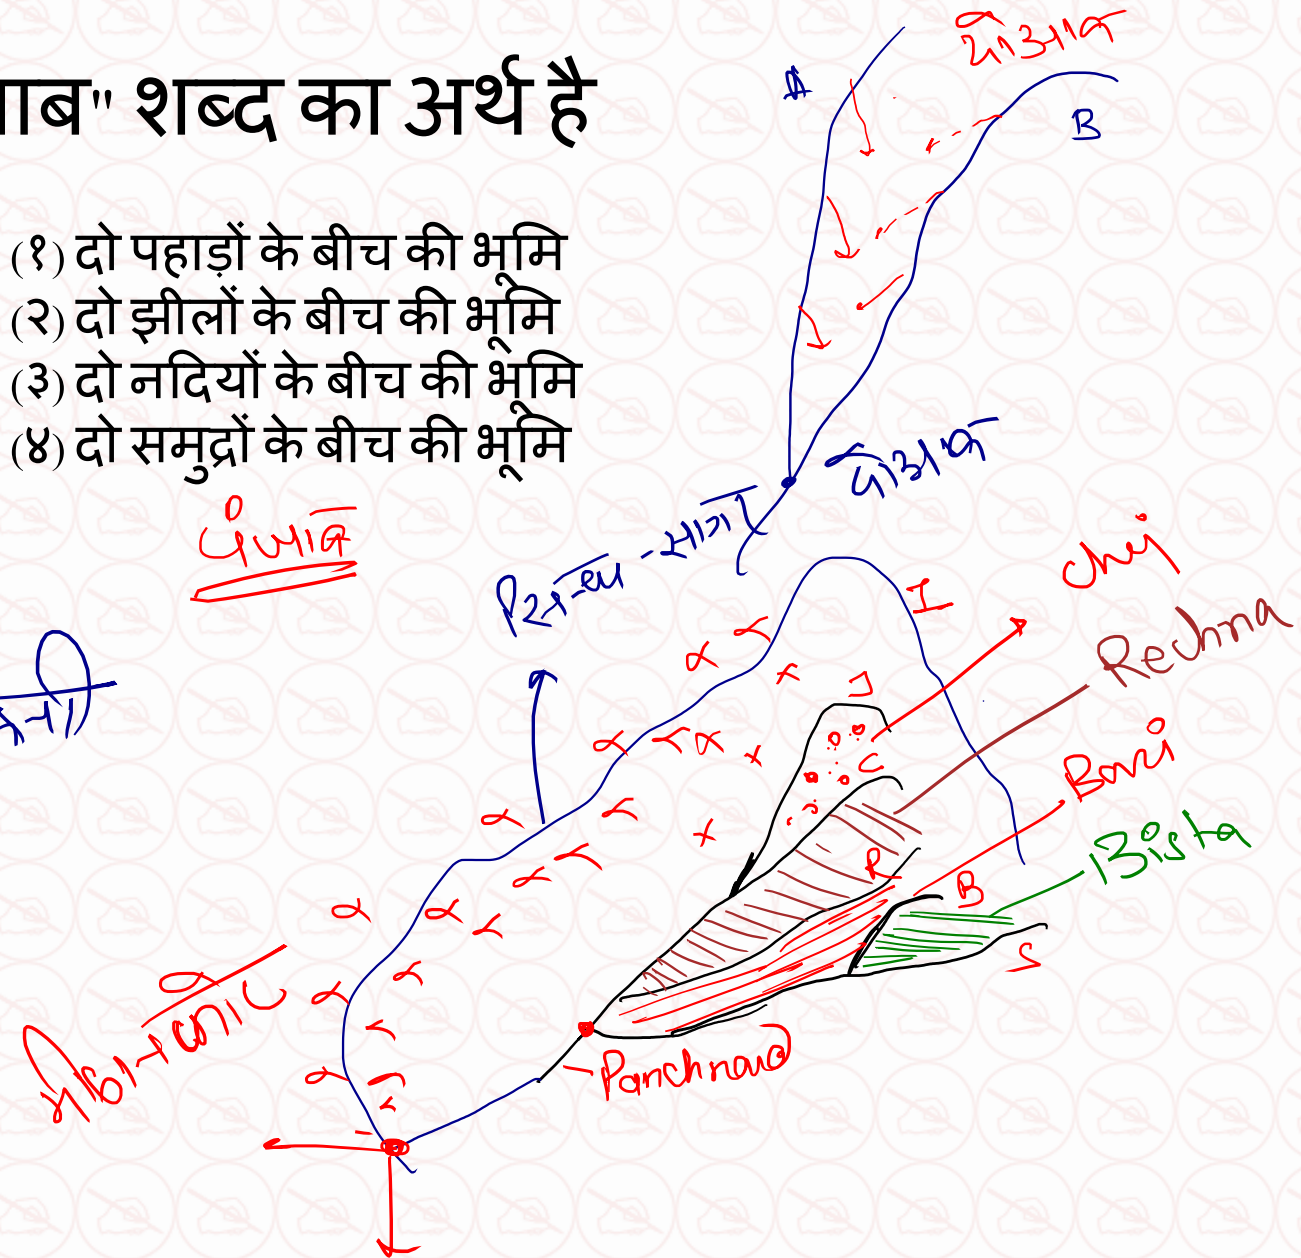 ाब" शब्द का अर्थ है
(१) दो पहाड़ों के बीच की भूमि
(२) दो झीलों के बीच की भूमि
(३) दो नदियों के बीच की भूमि
(४) दो समुद्रों के बीच की भूमि
दोआब
A
B
दोआब
पंजाब
सिन्धु - सागर
I
Chej
Rechna
J
C
Bari
R
Bista
B
S
Panchnavd